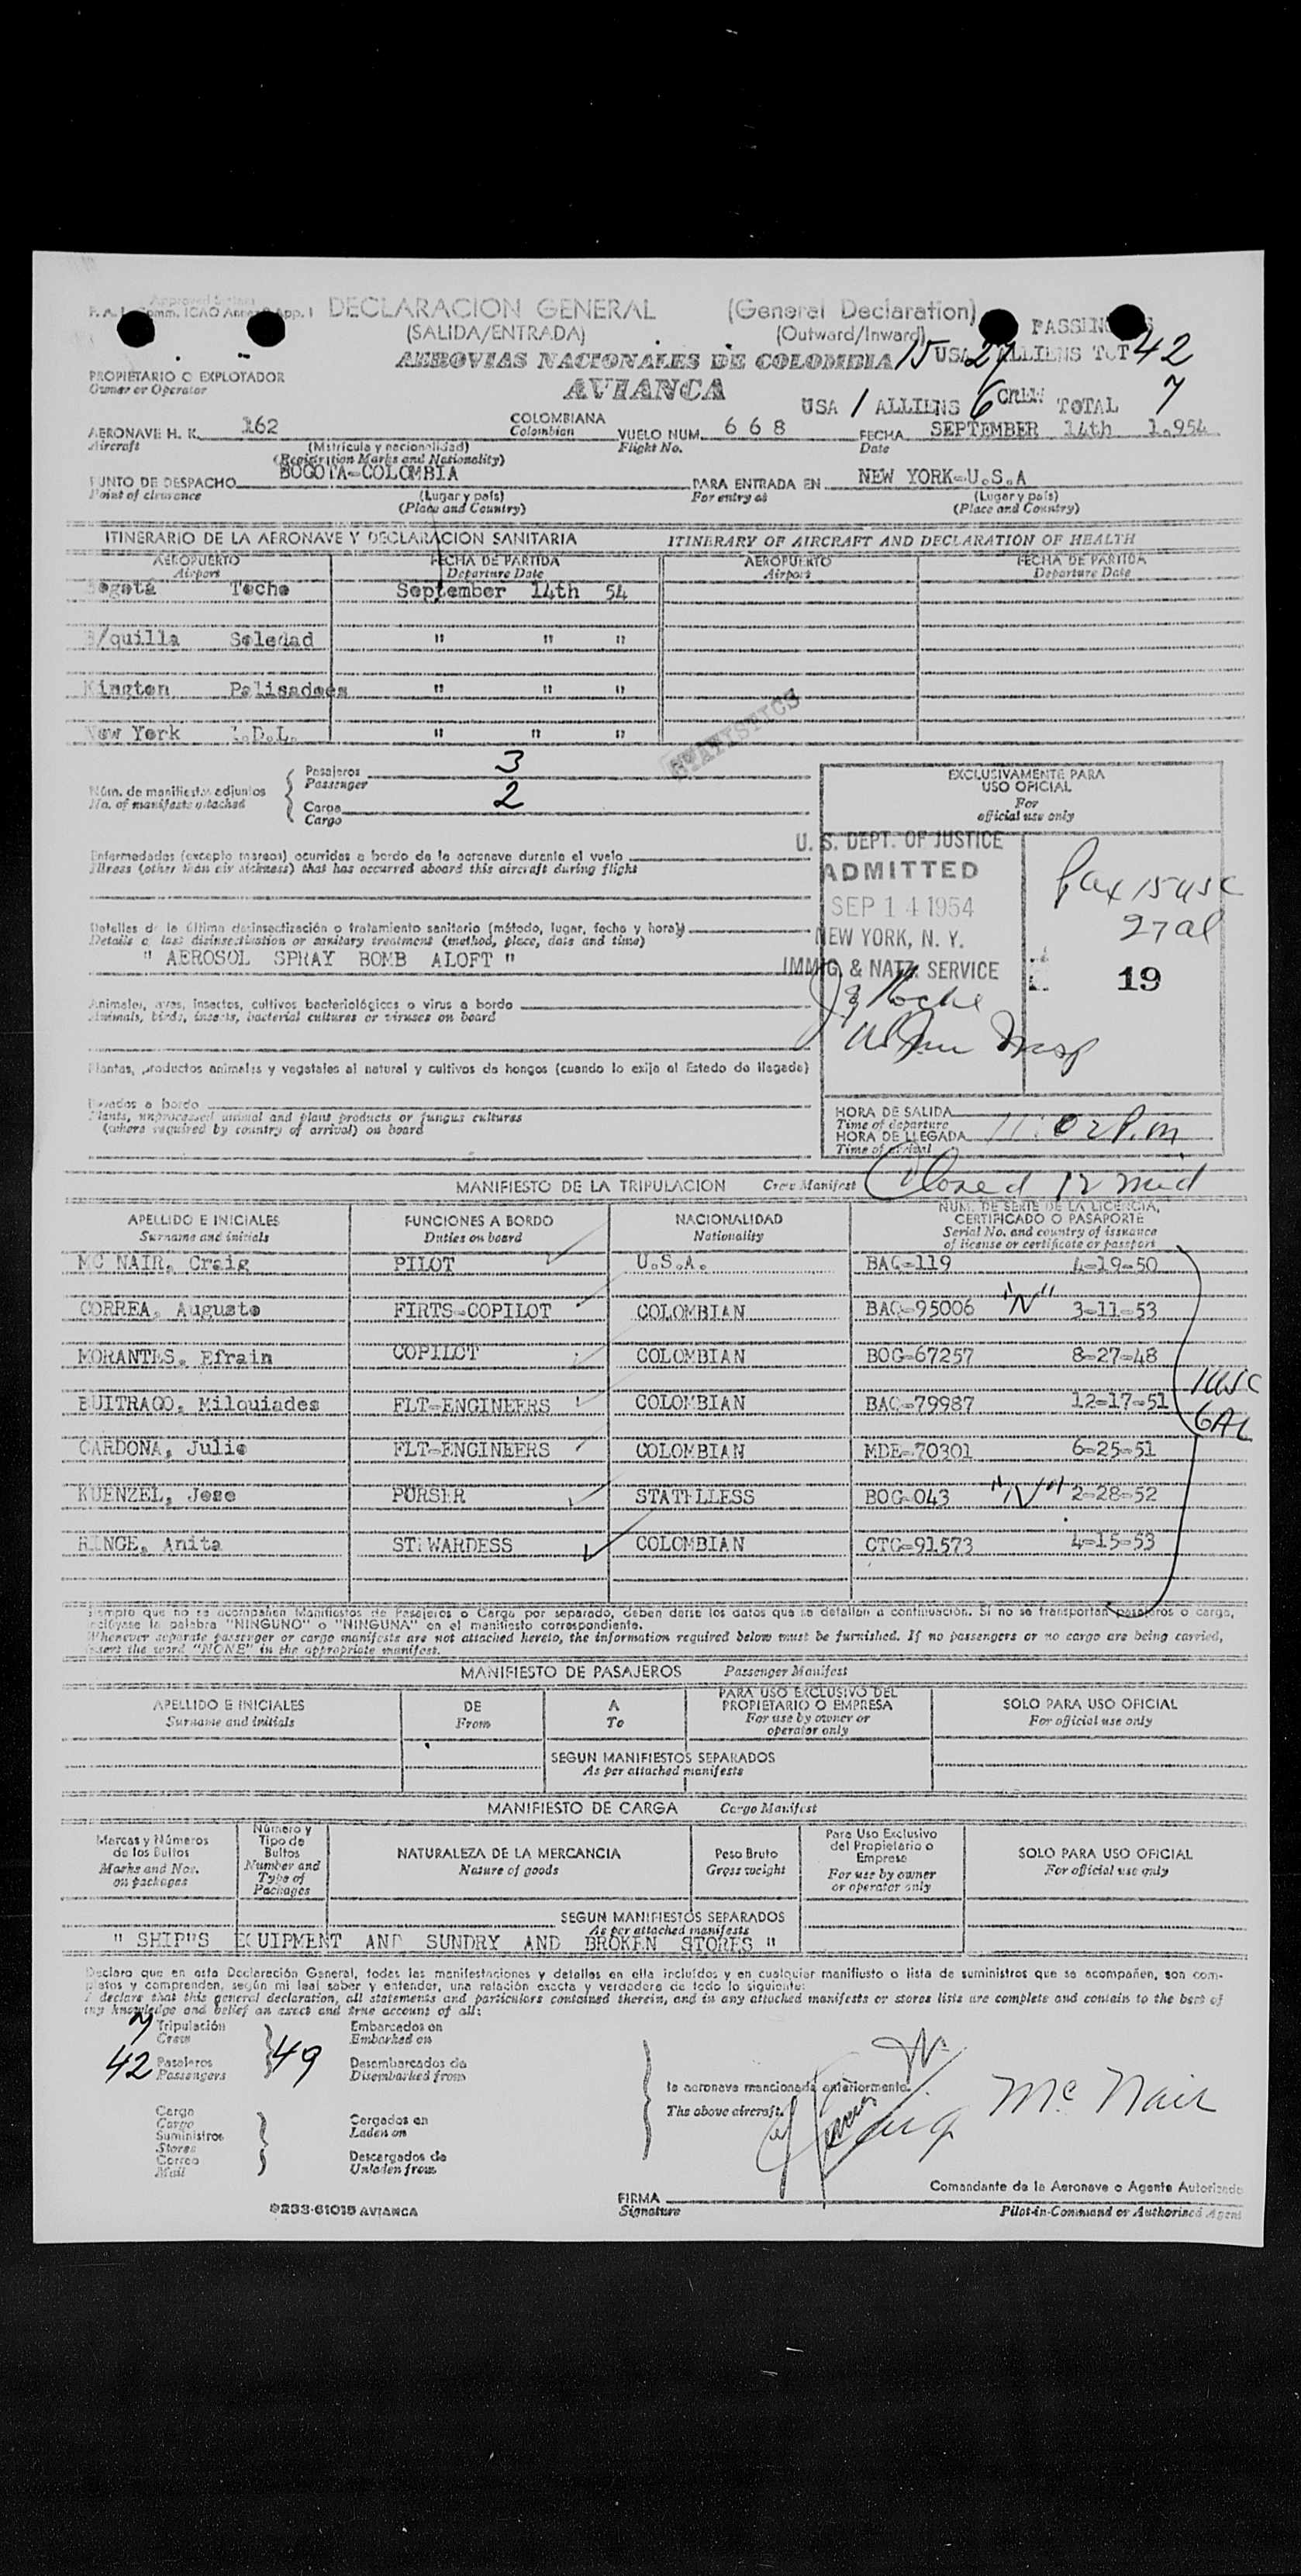 Approved
F. A. L. Comm. ICAO Annex 9 App. 1
DECLARACION GENERAL (General Declaration)
(SALIDA/ENTRADA) (Outward/Inward)
AEROVIAS NACIONALES DE COLOMBIA 15 USA 27 ALLIENS TOT 42
PROPIETARIO O EXPLOTADOR
Owner or Operator
AVIANCA
USA 1 ALLIENS 6 CREW TOTAL 7
AERONAVE H. K. 162 COLOMBIANA VUELO NUM. 668 FECHA SEPTEMBER 14th 1.954
Aircraft (Matrícula y nacionalidad) Colombian Flight No. Date
(Registrition Marks and Nationality)
PUNTO DE DESPACHO BOGOTA-COLOMBIA PARA ENTRADA EN NEW YORK-U.S.A
Point of clearance (Lugar y país) For entry at (Lugar y país)
(Place and Country) (Place and Country)
ITINERARIO DE LA AERONAVE Y DECLARACION SANITARIA ITINERARY OF AIRCRAFT AND DECLARATION OF HEALTH
AEROPUERTO FECHA DE PARTIDA AEROPUERTO FECHA DE PARTIDA
Airport Departure Date Airport Departure Date
Bogotá Techo September 14th 54
B/quilla Soledad " " "
Kington Palisadoes " " "
New York I.D.L. " " "
STATISTICS
Núm. de manifiestos adjuntos Pasajeros 3
No. of manifests attached Passenger
Carga 2
Cargo
EXCLUSIVAMENTE PARA
USO OFICIAL
For
official use only
Enfermedades (excepto mareos) ocurridas a bordo de la aeronave durante el vuelo
Illness (other than air sickness) that has occurred aboard this aircraft during flight
U. S. DEPT. OF JUSTICE
ADMITTED
SEP 14 1954
NEW YORK, N. Y.
IMMIG. & NATZ. SERVICE
Pax 15 usc
27 al
19
Detalles de la última desinsectización o tratamiento sanitario (método, lugar, fecha y hora)
Details of last disinsectisation or sanitary treatment (method, place, date and time)
" AEROSOL SPRAY BOMB ALOFT "
Animales, aves, insectos, cultivos bacteriológicos o virus a bordo
Animals, birds, insects, bacterial cultures or viruses on board
Plantas, productos animales y vegetales al natural y cultivos de hongos (cuando lo exija el Estado de llegada)
llevados a bordo
Plants, unprocessed animal and plant products or fungus cultures
(where required by country of arrival) on board
HORA DE SALIDA
Time of departure
HORA DE LLEGADA 11:02 P.m
Time of arrival
Closed 12 mid
MANIFIESTO DE LA TRIPULACION Crew Manifest
APELLIDO E INICIALES FUNCIONES A BORDO NACIONALIDAD NUM. DE SERIE DE LA LICENCIA, CERTIFICADO O PASAPORTE
Surname and initials Duties on board Nationality Serial No. and country of issuance of license or certificate or passport
MC NAIR, Craig PILOT U.S.A. BAQ-119 4-19-50
CORREA, Augusto FIRTS-COPILOT COLOMBIAN BAQ-95006 "N" 3-11-53
MORANTES, Efrain COPILOT COLOMBIAN BOG-67257 8-27-48
BUITRAGO, Milquiades FLT-ENGINEERS COLOMBIAN BAQ-79987 12-17-51
1 USC
6 AL
CARDONA, Julio FLT-ENGINEERS COLOMBIAN MDE-70301 6-25-51
KUENZEL, Jose PURSER STATELLESS BOG-043 "N" 2-28-52
RINGE, Anita STEWARDESS COLOMBIAN CTG-91573 4-15-53
Siempre que no se acompañen Manifiestos de Pasajeros o Carga por separado, deben darse los datos que se detallan a continuación. Si no se transportan pasajeros o carga,
inclúyase la palabra "NINGUNO" o "NINGUNA" en el manifiesto correspondiente.
Whenever separate passenger or cargo manifests are not attached hereto, the information required below must be furnished. If no passengers or no cargo are being carried,
insert the word "NONE" in the appropriate manifest.
MANIFIESTO DE PASAJEROS Passenger Manifest
APELLIDO E INICIALES DE A PARA USO EXCLUSIVO DEL PROPIETARIO O EMPRESA SOLO PARA USO OFICIAL
Surname and initials From To For use by owner or operator only For official use only
SEGUN MANIFIESTOS SEPARADOS
As per attached manifests
MANIFIESTO DE CARGA Cargo Manifest
Marcas y Números de los Bultos Número y Tipo de Bultos NATURALEZA DE LA MERCANCIA Peso Bruto Para Uso Exclusivo del Propietario o Empresa SOLO PARA USO OFICIAL
Marks and Nos. on packages Number and Type of Packages Nature of goods Gross weight For use by owner or operator only For official use only
SEGUN MANIFIESTOS SEPARADOS
As per attached manifests
" SHIP"S EQUIPMENT AND SUNDRY AND BROKEN STORES "
Declaro que en esta Declaración General, todas las manifestaciones y detalles en ella incluídos y en cualquier manifiesto o lista de suministros que se acompañen, son com-
pletos y comprenden, según mi leal saber y entender, una relación exacta y verdadera de todo lo siguiente:
I declare that this general declaration, all statements and particulars contained therein, and in any attached manifests or stores lists are complete and contain to the best of
my knowledge and belief an exact and true account of all:
7 Tripulación Embarcados en
Crew Embarked on
42 Pasajeros 49 Desembarcados de
Passengers Disembarked from
la aeronave mencionada anteriormente.
The above aircraft.
Carga
Cargo
Suministros Cargados en
Stores Laden on
Correo Descargados de
Mail Unladen from
Craig Mc Nair
Comandante de la Aeronave o Agente Autorizado
FIRMA
Signature Pilot-in-Command or Authorized Agent
233-61015 AVIANCA